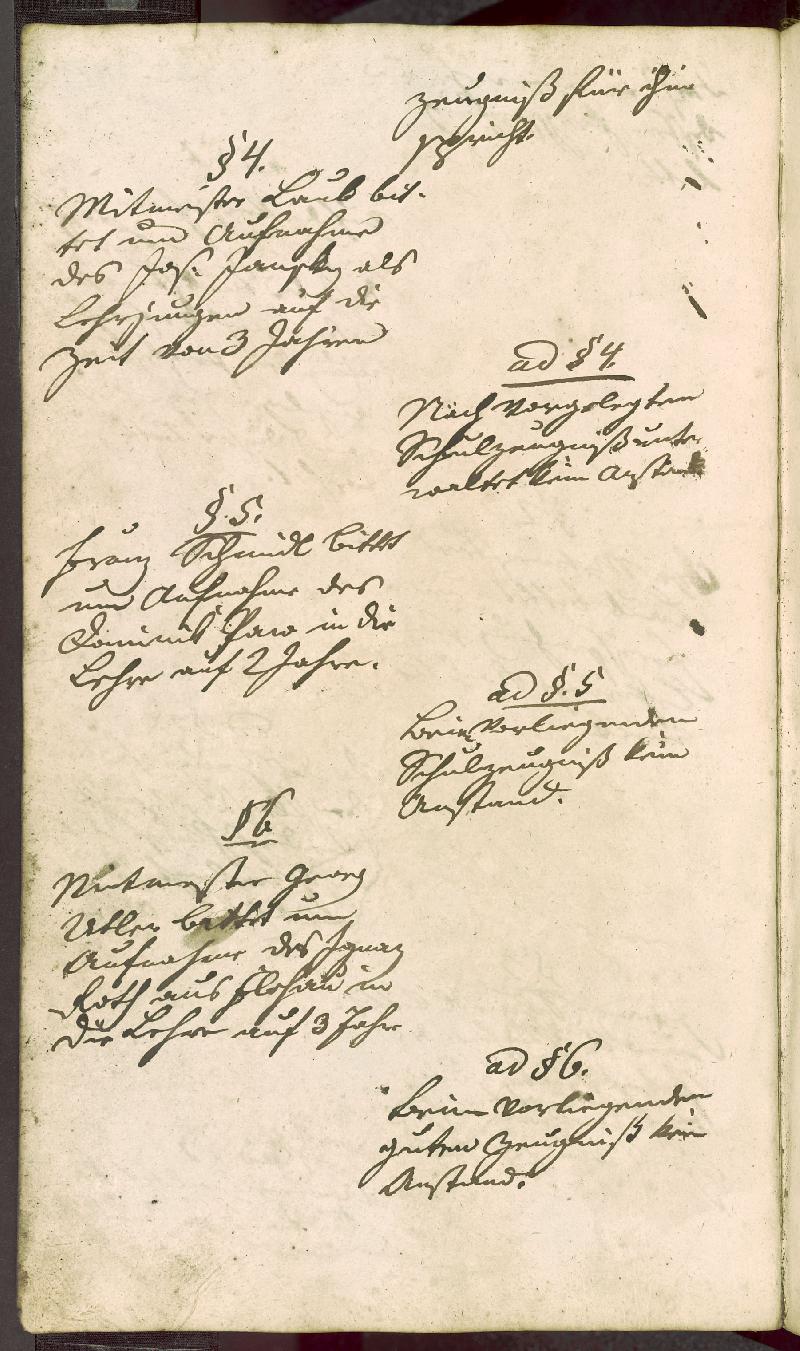 zeugniß für ihn
spricht.
§ 4.
Mitmeister Laub bit-
tet um Aufnahme
des Jos. Jansky als
Lehrjungen auf die
Zeit von 3 Jahren
ad § 4.
Nach vorgelegtem
Schulzeugniß unter
waltet kein Anstand
§. 5.
Franz Schmidl bittet
um Aufnahme des
Dominik Paw in die
Lehre auf 2 Jahre.
ad §. 5
Beim vorliegenden
Schulzeugniß kein
Anstand.
§ 6
Mitmeister Georg
Utler bittet um
Aufnahme des Ignaz
Roth aus in
die Lehre auf 3 Jahr
ad § 6.
Beim vorliegenden
guten Zeugniß kein
Anstand.